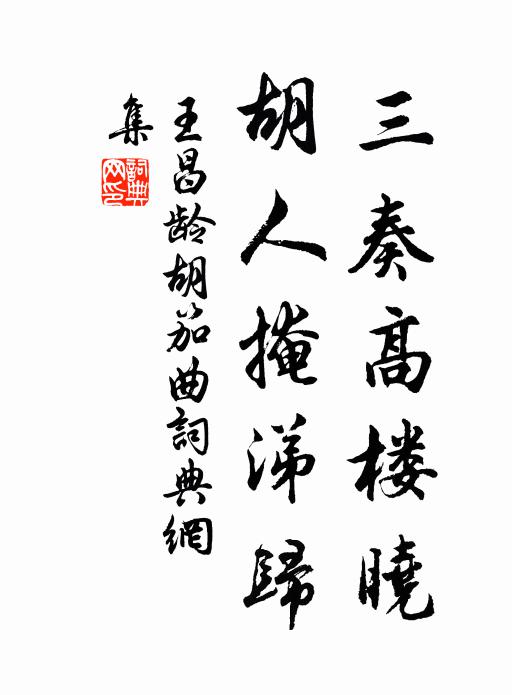 三奏高楼曉
胡人掩涕歸
王昌龄胡笳曲詞典網
集
詞典
网印